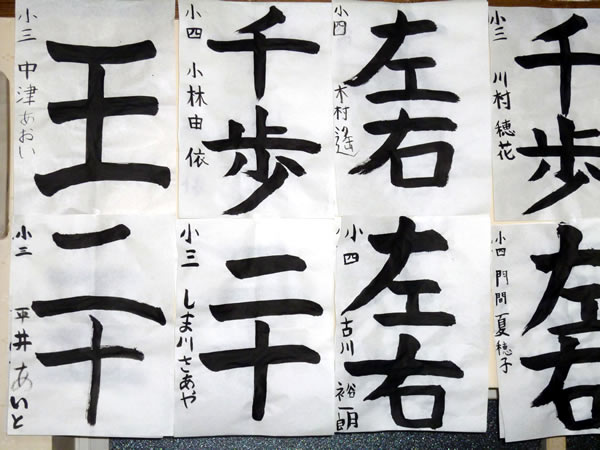 王
小三 中津あおい
千歩
小四 小林由依
左右
小四 木村遥
千歩
小三 川村穂花
二十
小三 平井あいと
二十
小三 しま川さあや
左右
小四 古川裕一朗
左右
小四 門間夏穂子